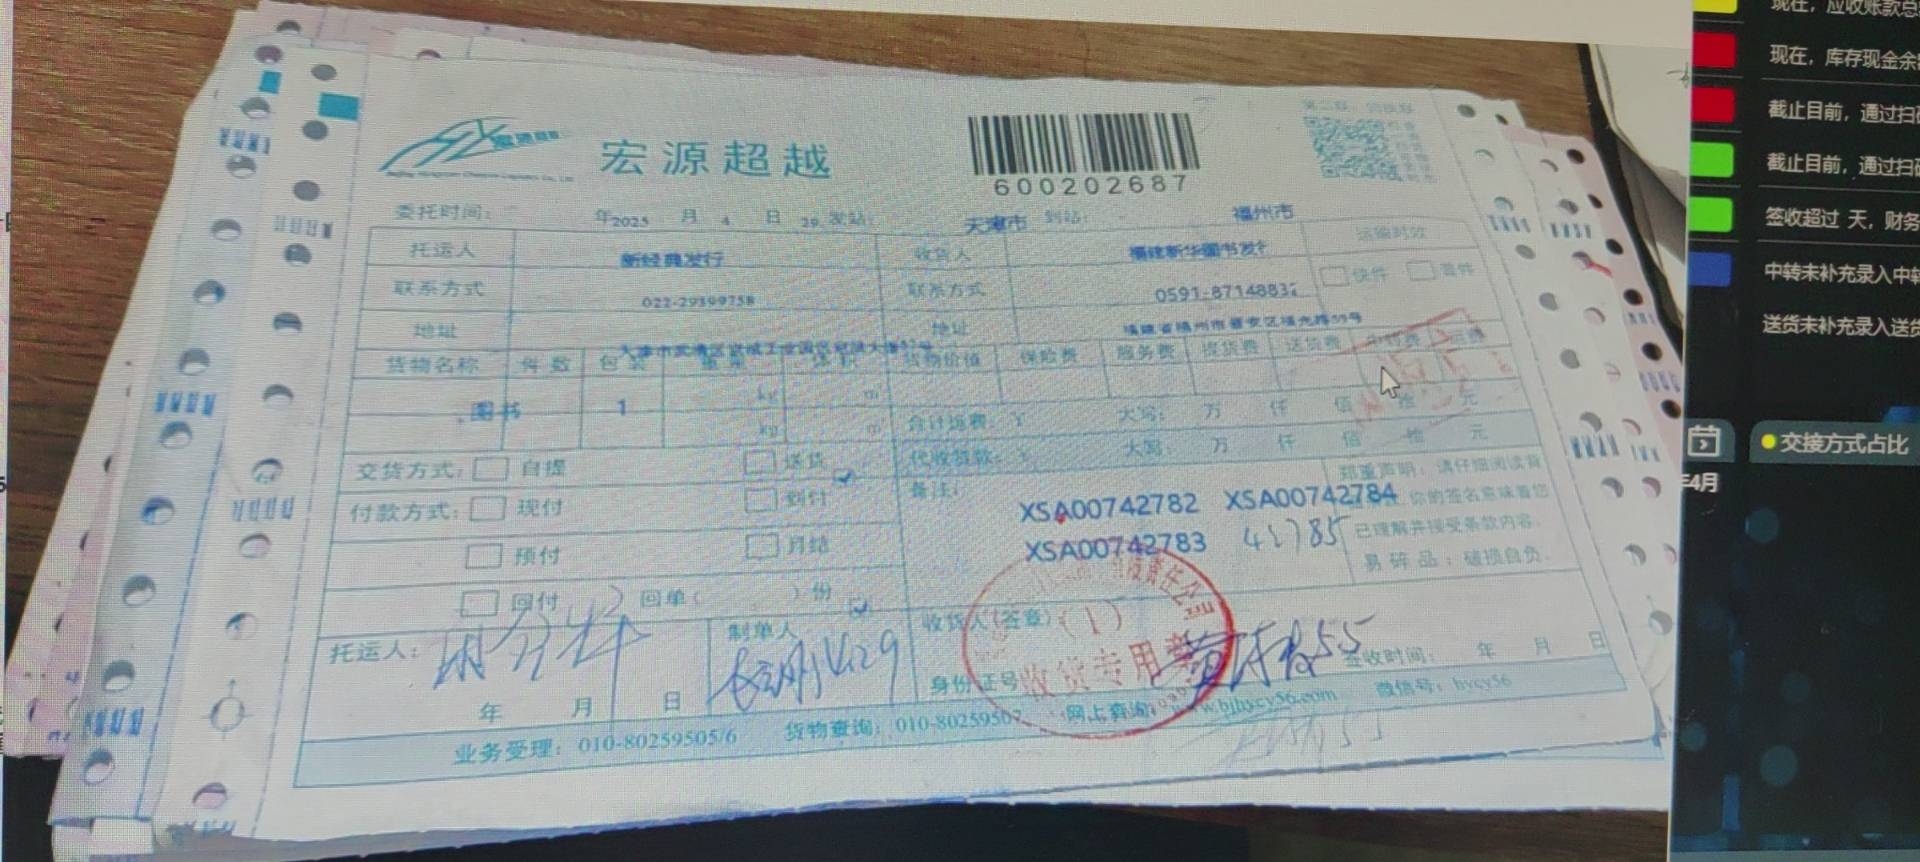 宏源超越
600202687
委托时间: 年2025 月 4 日 29 发站: 天津市 到站: 福州市
托运人 新经典发行 收货人 福建新华图书发行 运输时效
联系方式 022-29399758 联系方式 0591-8714883 快件 普件
地址 地址 福建省福州市晋安区福光路59号
货物名称 件数 包装 重量 体积 货物价值 保险费 服务费 提货费 送货费 中转费
图书 1 kg m³ 合计运费: ¥ 大写: 万 仟 佰 拾 元
kg m³ 代收货款: ¥ 大写: 万 仟 佰 拾 元
交货方式: 自提 送货 备注: 郑重声明: 请仔细阅读背
付款方式: 现付 到付 XSA00742782 XSA00742784 你的签名意味着您
预付 月结 XSA00742783 42785 已理解并接受条款内容.
回付 回单( )份 易碎品: 破损自负.
托运人: 制单人 收货人(签章) (1)
收货专用章
年 月 日 身份证号 签收时间: 年 月 日
业务受理: 010-80259505/6 货物查询: 010-80259507 网上查询: www.bjhycy56.com 微信号: hycy56
现在, 应收账款总
现在, 库存现金余
截止目前, 通过扫码
截止目前, 通过扫码
签收超过 天, 财务
中转未补充录入中转
送货未补充录入送货
交接方式占比
年4月